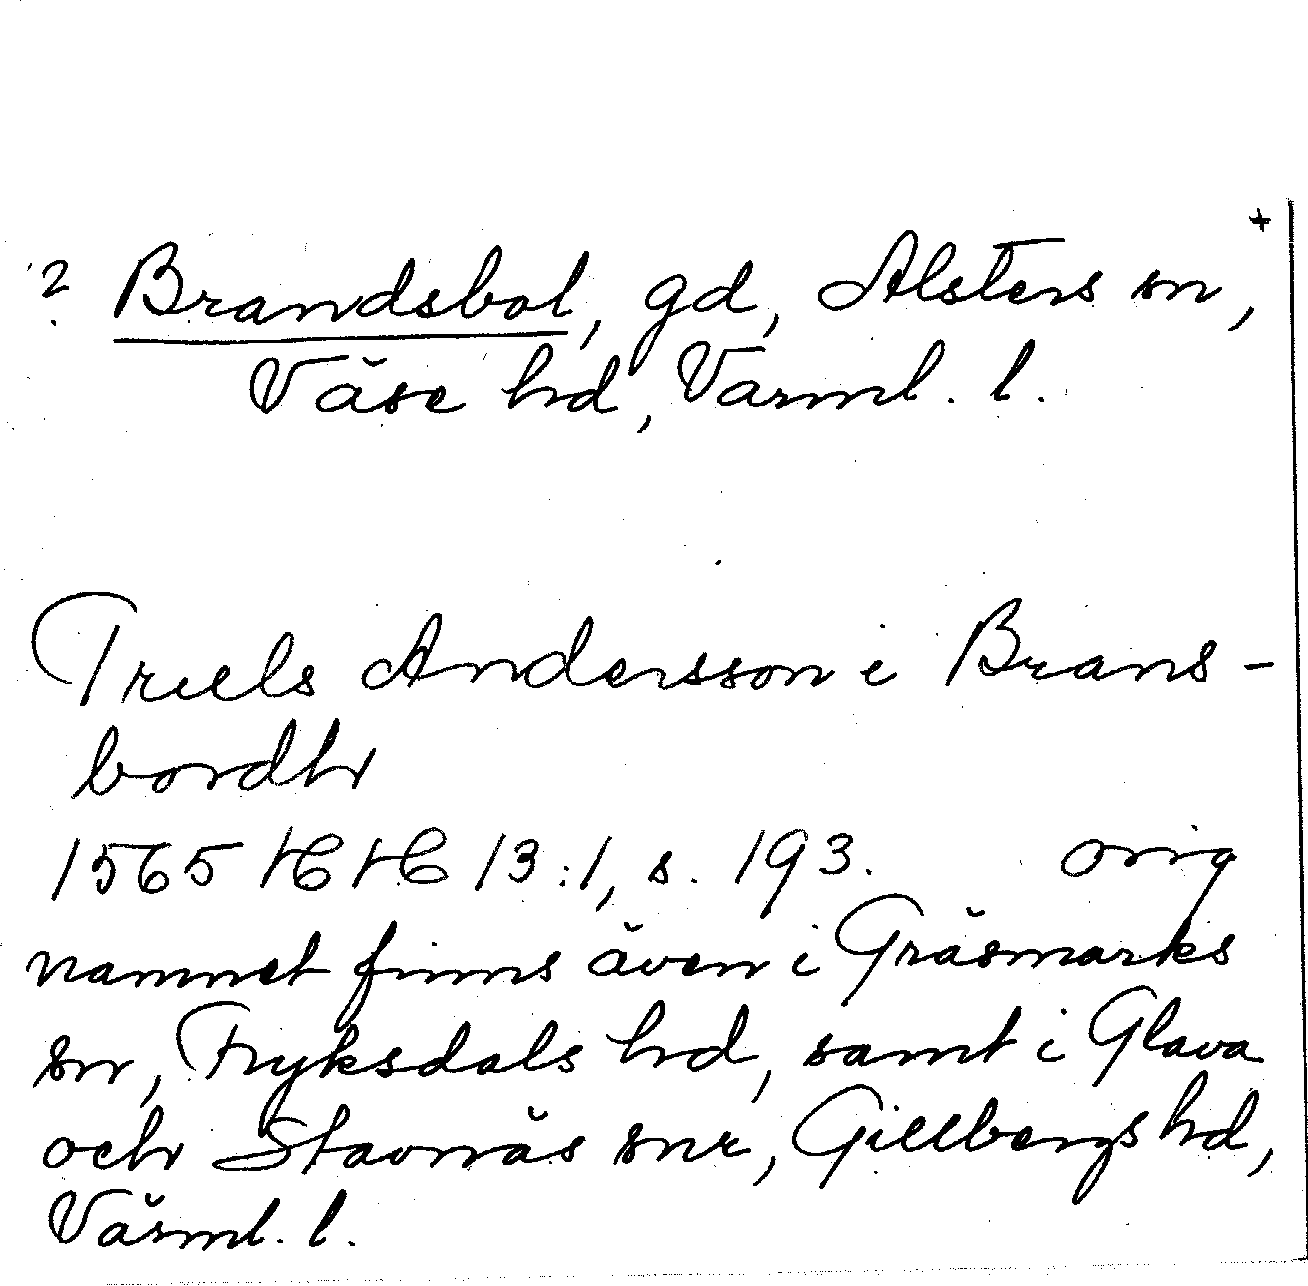 +
? Brandsbol, gd, Alsters sn,
Väse hd, Värml. l.
Truels Andersson i Brans-
bordh
1565 HH 13:1, s. 193. orig
namnet finns även i Gräsmarks
sn, Fryksdals hd, samt i Glava
och Stavnäs snr, Gillbergs hd,
Värml. l.